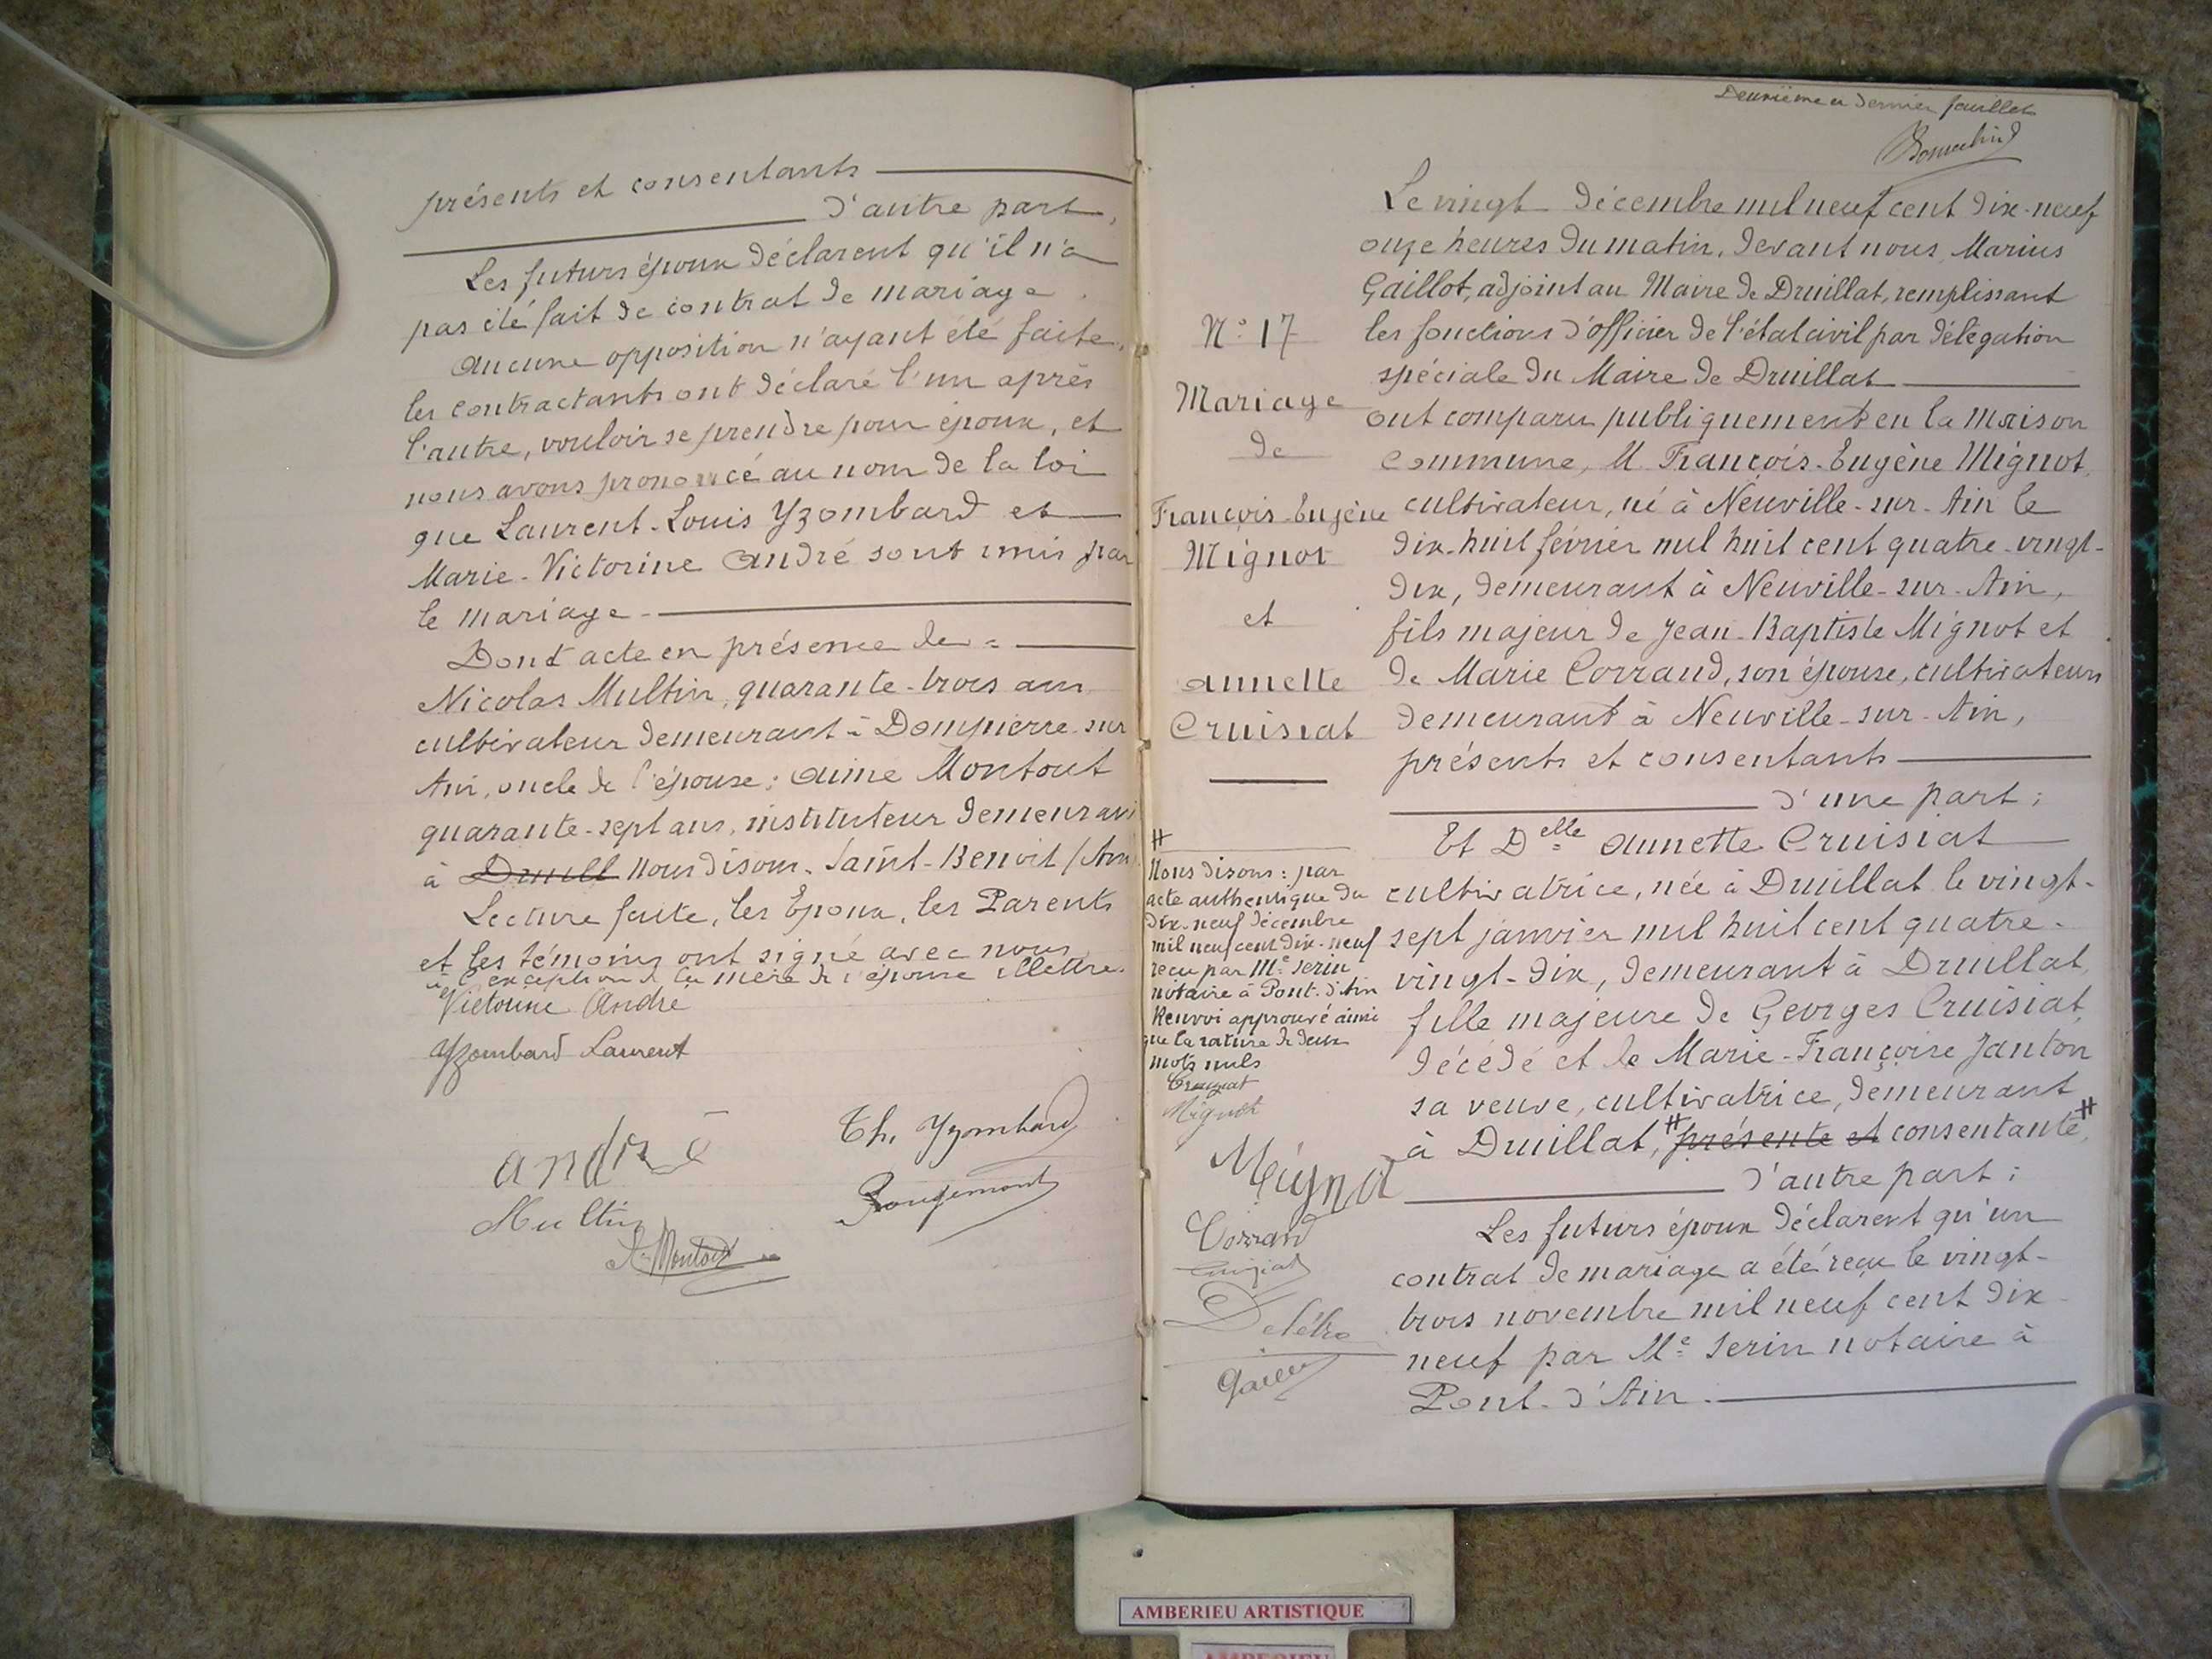 présents et consentants
d'autre part,
Les futurs époux déclarent qu'il n'a
pas été fait de contrat de mariage.
Aucune opposition n'ayant été faite,
les contractants ont déclaré l'un après
l'autre, vouloir se prendre pour époux, et
nous avons prononcé au nom de la loi
que Laurent-Louis Yzombard et
Marie-Victorine André sont unis par
le mariage
Dont acte en présence de :
Nicolas Multin, quarante-trois ans
cultivateur demeurant à Dompierre-sur
Ain, oncle de l'épouse ; Aimé Montout
quarante-sept ans, instituteur demeurant
à Druill nous disons Saint-Benoit (Ain)
Lecture faite, les Epoux, les Parents
et les témoins ont signé avec nous
à l'exception de la mère de l'épouse illettrée.
Victorine André
Yzombard Laurent
andré
Th. Yzombard
Multin
Rougemont
A. Montout
Deuxième et dernier feuillet
N° 17
Mariage
de
François-Eugène
Mignot
et
Annette
Cruisiat
Le vingt décembre mil neuf cent dix-neuf
onze heures du matin, devant nous, Marius
Gaillot, adjoint au Maire de Druillat, remplissant
les fonctions d'officier de l'état civil par délégation
spéciale du Maire de Druillat
ont comparu publiquement en la maison
commune, M. François-Eugène Mignot,
cultivateur, né à Neuville-sur-Ain le
dix-huit février mil huit cent quatre-vingt-
dix, demeurant à Neuville-sur-Ain,
fils majeur de Jean-Baptiste Mignot et
de Marie Corrand, son épouse, cultivateurs
demeurant à Neuville-sur-Ain,
présents et consentants
d'une part ;
Et Delle Annette Cruisiat
cultivatrice, née à Druillat le vingt-
sept janvier mil huit cent quatre-
vingt-dix, demeurant à Druillat,
fille majeure de Georges Cruisiat,
décédé et de Marie-Françoise Janton
sa veuve, cultivatrice, demeurant
à Druillat, # présente et consentante #,
d'autre part ;
Les futurs époux déclarent qu'un
contrat de mariage a été reçu le vingt-
trois novembre mil neuf cent dix-
neuf par Me Serin notaire à
Pont-d'Ain.
#
Nous disons : par
acte authentique du
dix-neuf décembre
mil neuf cent dix-neuf
reçu par Me Serin
notaire à Pont-d'Ain
Renvoi approuvé ainsi
que la rature de deux
mots nuls
Cruisiat
Mignot
Mignot
Corrand
Cruisiat
AMBERIEU ARTISTIQUE
AMBERIEU